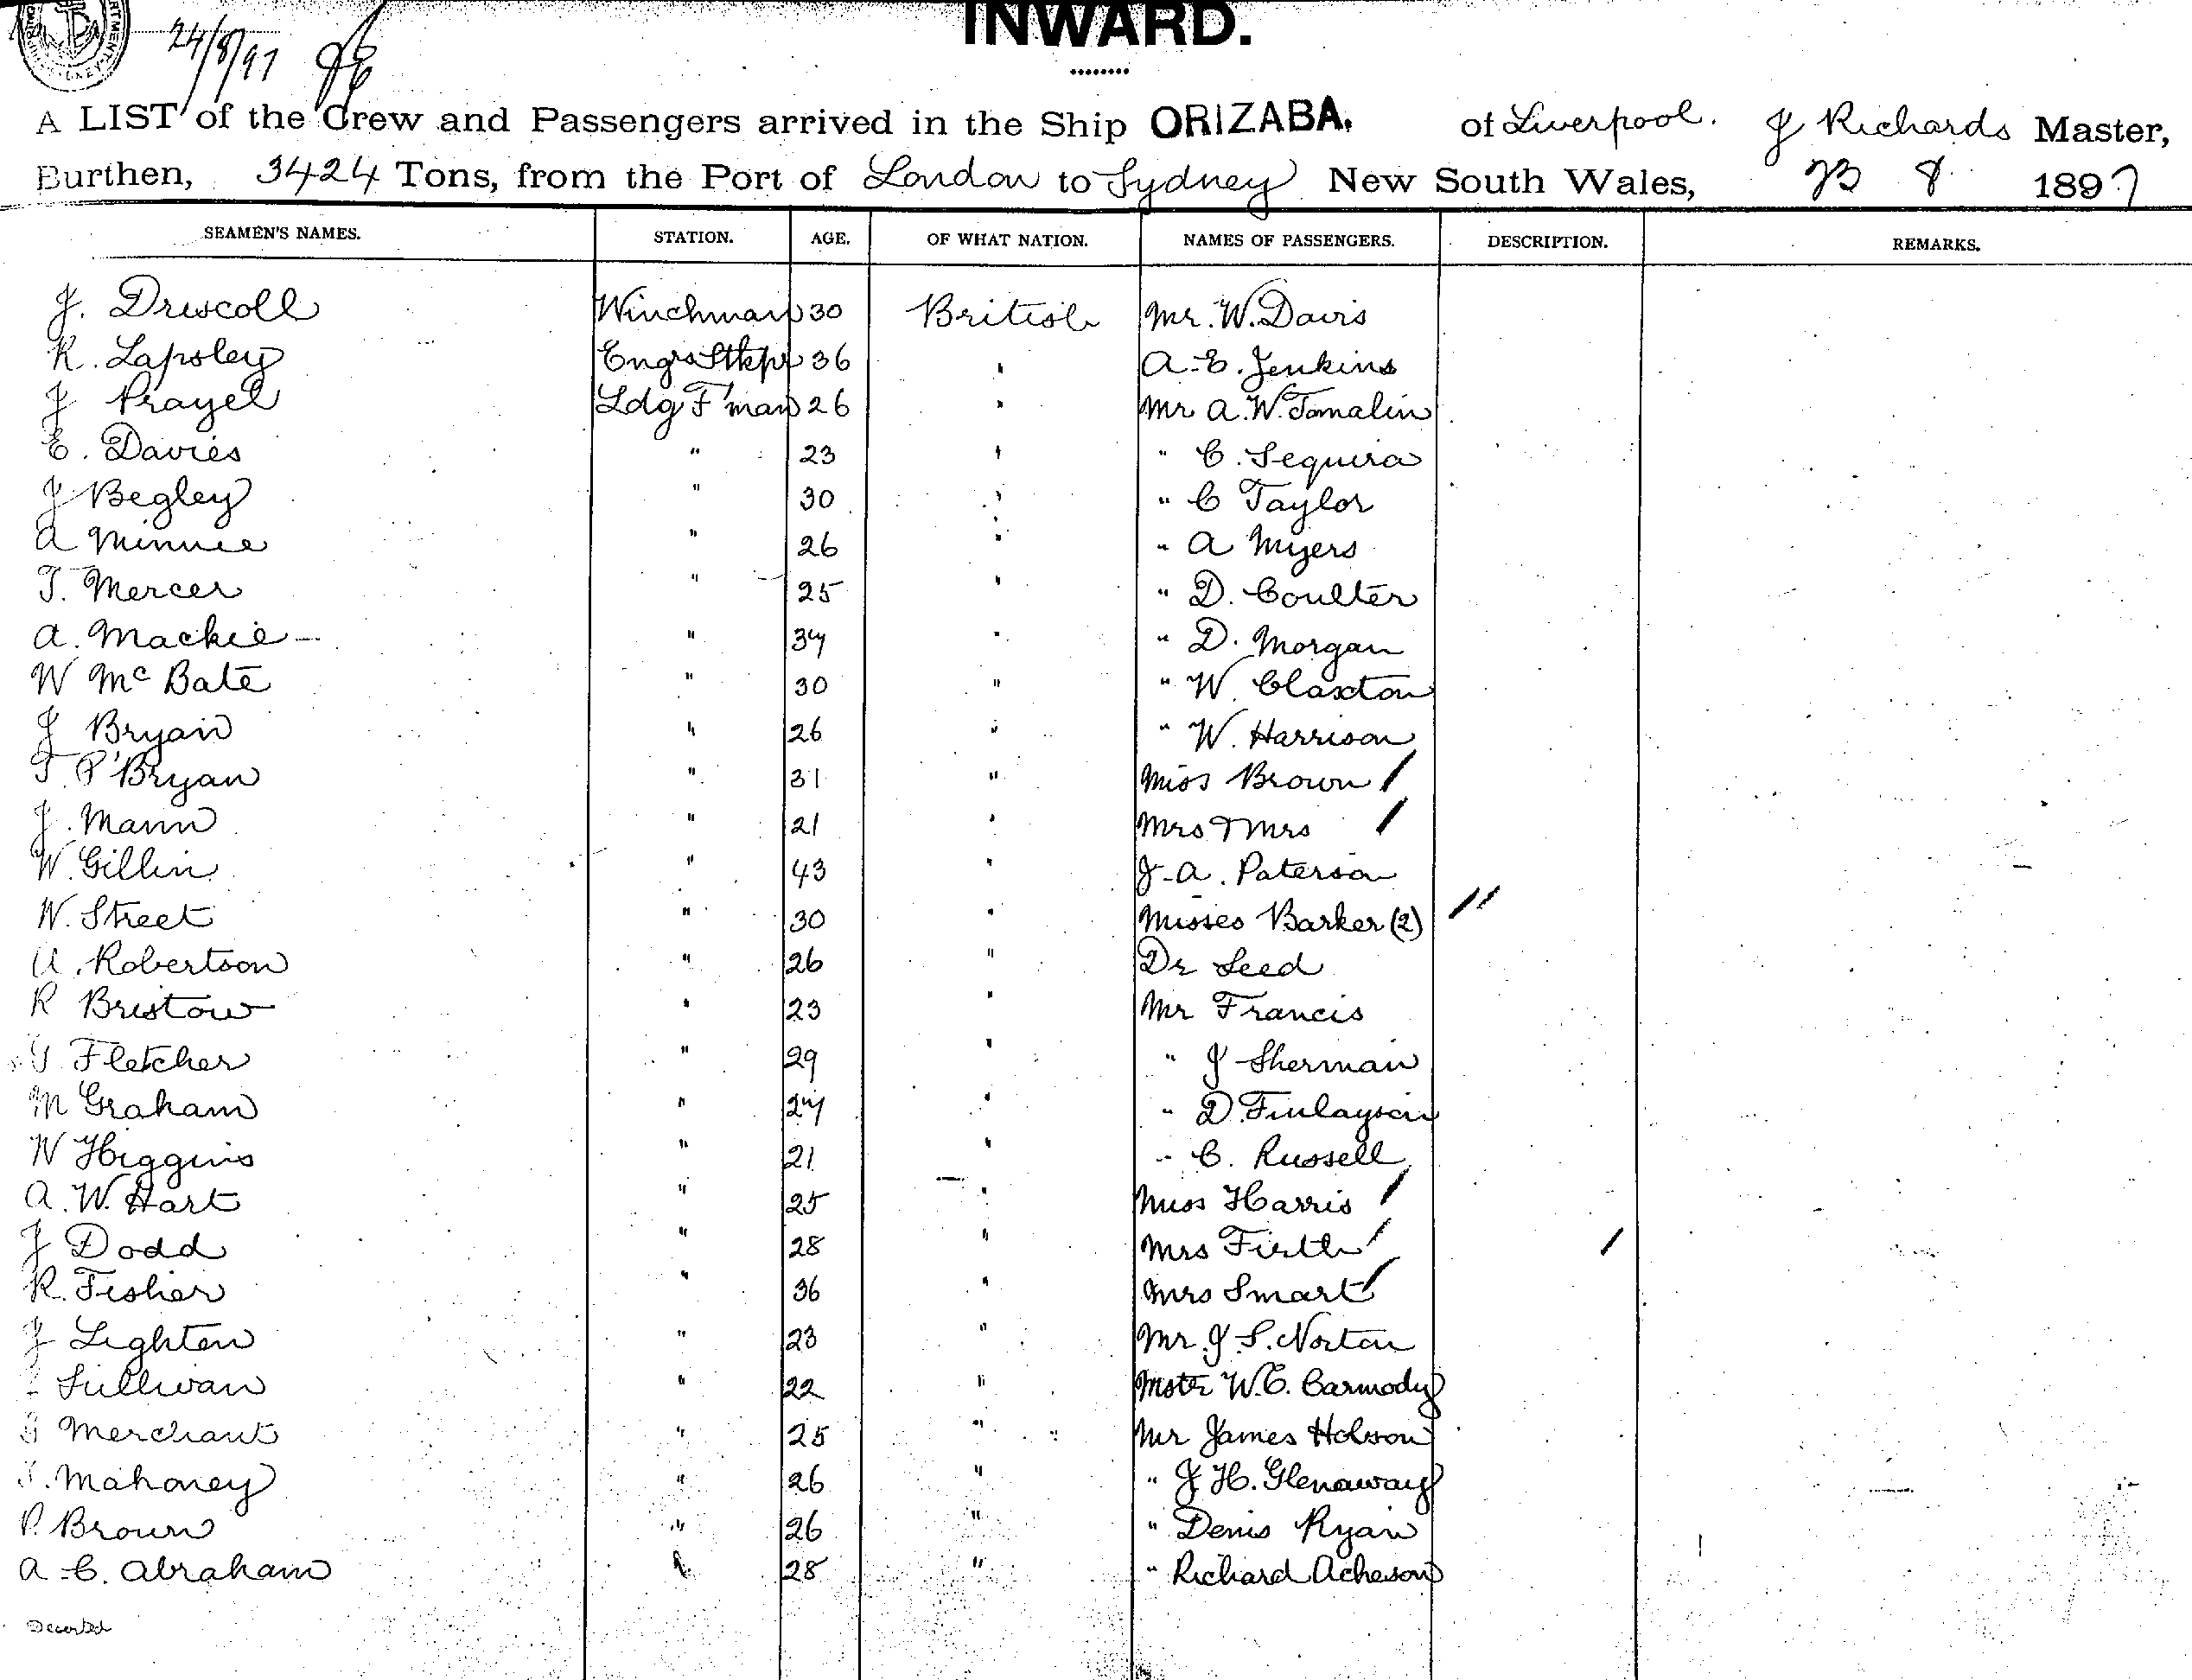 24/8/97
INWARD.
A LIST of the Crew and Passengers arrived in the Ship ORIZABA. of Liverpool. J Richards Master,
Burthen, 3424 Tons, from the Port of London to Sydney New South Wales, 23 8 1897
SEAMEN'S NAMES. STATION. AGE. OF WHAT NATION. NAMES OF PASSENGERS. DESCRIPTION. REMARKS.
J. Driscoll Winchman 30 British Mr. W. Davis
R. Lapsley Engrs Stkpr 36 " A. E. Jenkins
J Prayel Ldg F'man 26 " Mr A. W. Tomalin
E. Davies " 23 " " C. Sequira
J Begley " 30 " " C Taylor
A Minnie " 26 " " A Myers
T. Mercer " 25 " " D. Coulter
A. Mackie " 34 " " D. Morgan
W McBate " 30 " " W. Claxton
J Bryan " 26 " " W. Harrison
T. P Bryan " 31 " Miss Brown /
J. Mann " 21 " Mrs & Mrs /
W. Gillin " 43 " J. A. Paterson
W. Street " 30 " Misses Barker (2) //
A. Robertson " 26 " Dr Seed
R Bristow " 23 " Mr Francis
Fletcher " 29 " " J Sherman
M Graham " 24 " " D. Finlayson
W Higgins " 21 " " C. Russell
A. W. Hart " 25 " Miss Harris /
J Dodd " 28 " Mrs Firth / /
R. Fisher " 36 " Mrs Smart /
J Lighten " 23 " Mr. J. S. Norton
Sullivan " 22 " Mstr W. C. Carmody
Merchant " 25 " Mr James Hobson
Mahoney " 26 " " J H. Glenaway
P. Brown " 26 " " Denis Ryan
A. C. Abraham " 28 " " Richard Acheson
Deserted